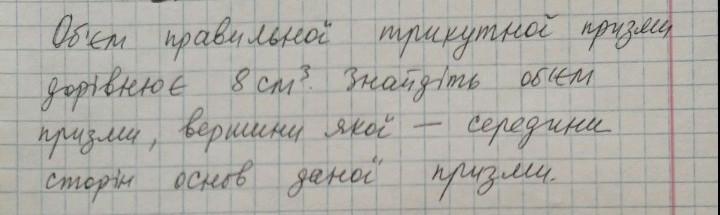 Об'єм правильної трикутної призми
дорівнює 8 см³. Знайдіть об'єм
призми, вершини якої – середини
сторін основ даної призми.